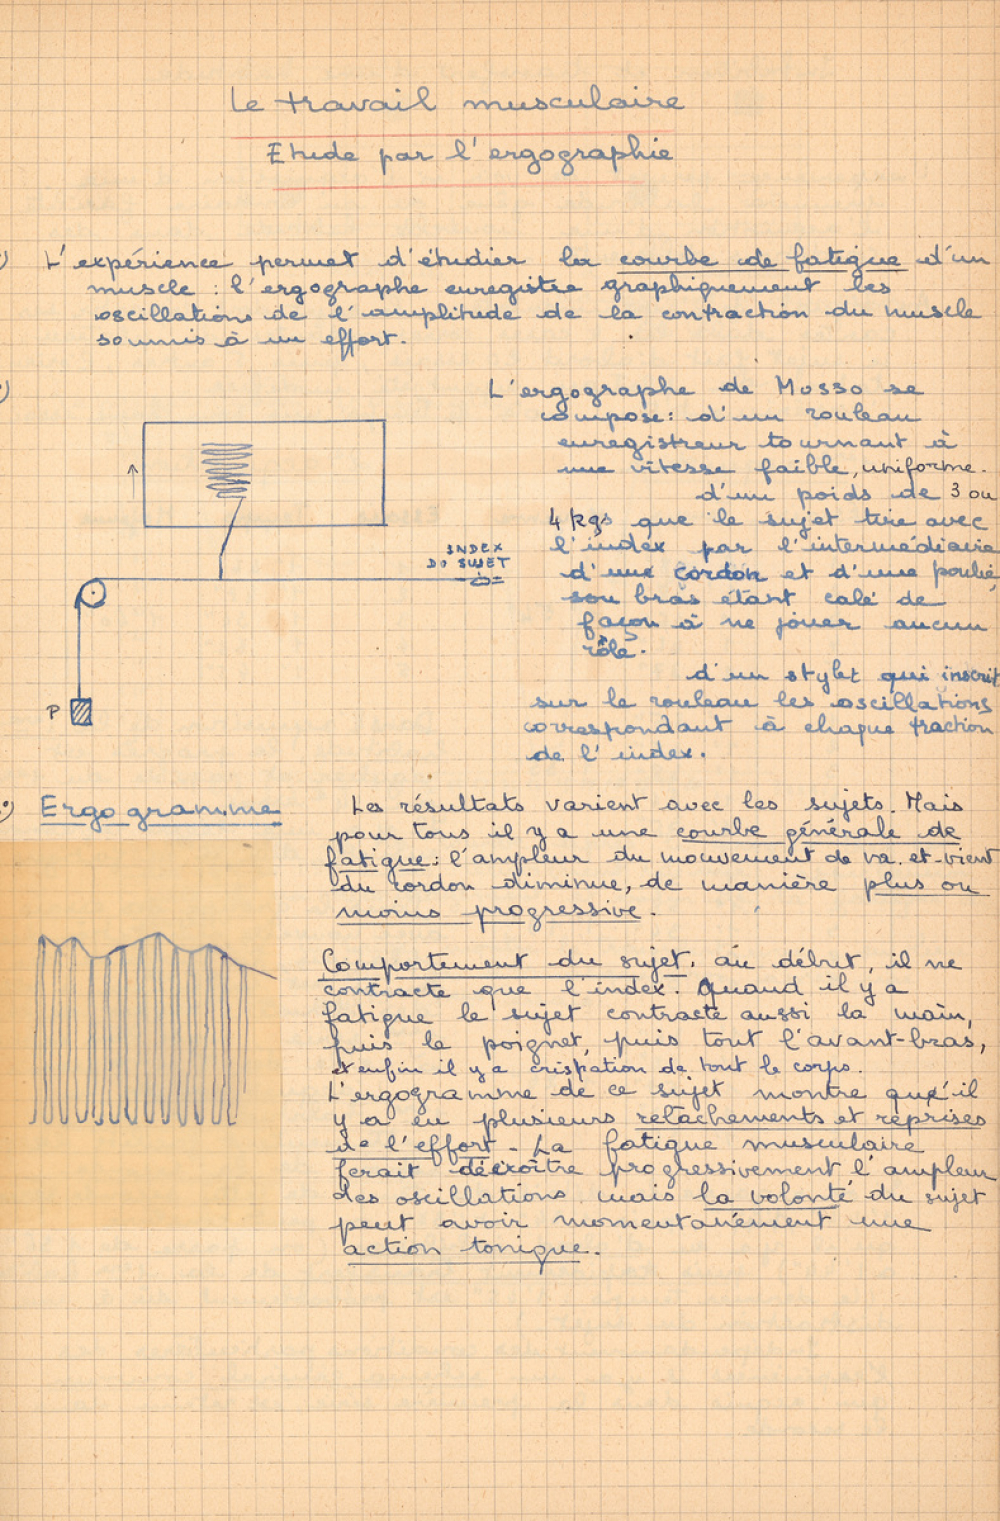 Le travail musculaire
Etude par l'ergographie
L'expérience permet d'étudier la courbe de fatigue d'un
muscle : l'ergographe enregistre graphiquement les
oscillations de l'amplitude de la contraction du muscle
soumis à un effort.
L'ergographe de Mosso se
compose : d'un rouleau
enregistreur tournant à
une vitesse faible, uniforme.
d'un poids de 3 ou
4 kgs que le sujet tire avec
l'index par l'intermédiaire
d'une cordon et d'une poulie,
son bras étant calé de
façon à ne jouer aucun
rôle.
d'un stylet qui inscrit
sur le rouleau les oscillations
correspondant à chaque traction
de l'index.
INDEX
DU SUJET
P
Ergogramme
Les résultats varient avec les sujets. Mais
pour tous il y a une courbe générale de
fatigue : l'ampleur du mouvement de va. et-vient
du cordon diminue, de manière plus ou
moins progressive.
Comportement du sujet. au début, il ne
contracte que l'index. Quand il y a
fatigue le sujet contracte aussi la main,
puis le poignet, puis tout l'avant-bras,
et enfin il y a crispation de tout le corps.
L'ergogramme de ce sujet montre qu'il
y a eu plusieurs relachements et reprises
de l'effort - La fatigue musculaire
ferait décroître progressivement l'ampleur
des oscillations mais la volonté du sujet
peut avoir momentanément une
action tonique.